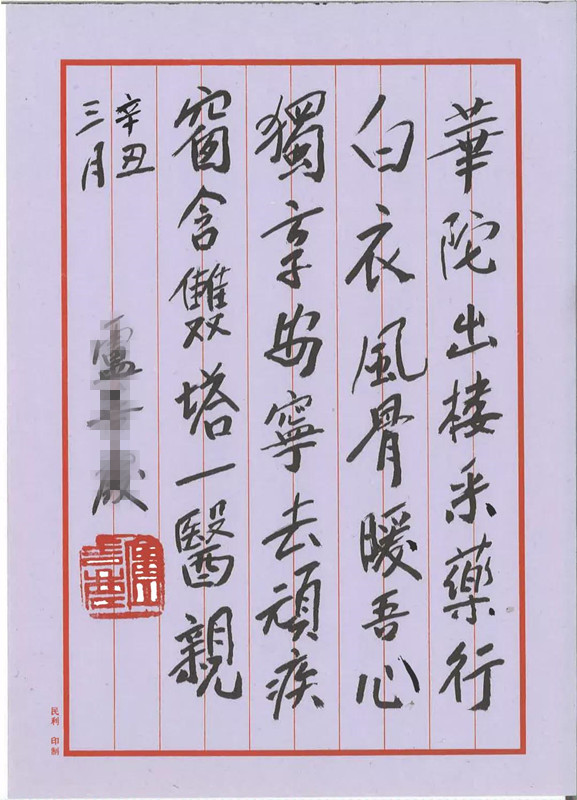 華陀出棲采藥行
白衣風骨暖吾心
獨享安寧去頑疾
窗含雙塔一醫親
辛丑
三月
民利 印制